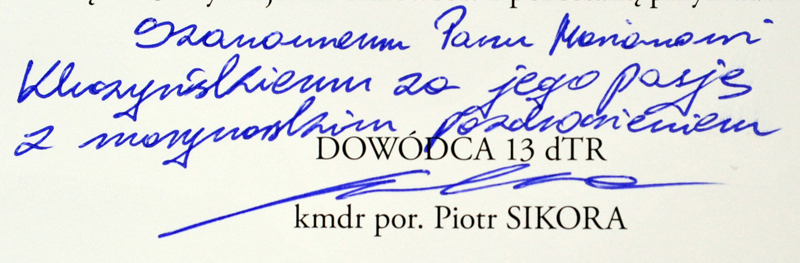 Szanownemu Panu Marianowi
Kluczyńskiemu za jego pasję
z marynarskim pozdrowieniem
DOWÓDCA 13 dTR
kmdr por. Piotr SIKORA